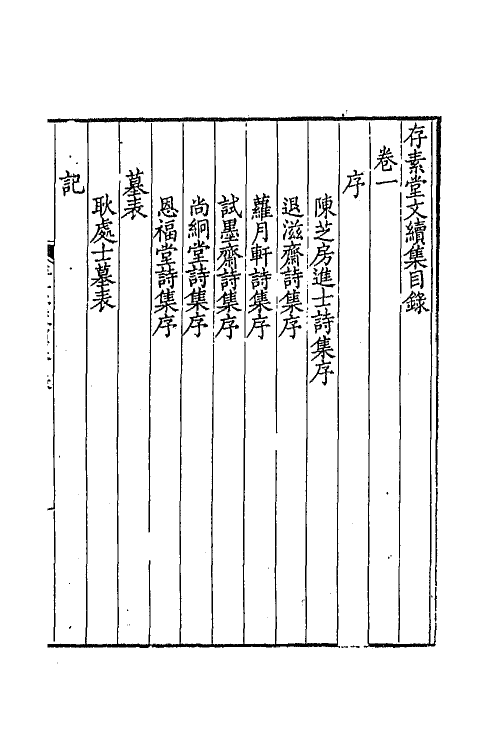 存素堂文續集目錄
卷一
序
陳芝房進士詩集序
退滋齋詩集序
蘿月軒詩集序
試墨齋詩集序
尚絅堂詩集序
恩福堂詩集序
墓表
耿處士墓表
記